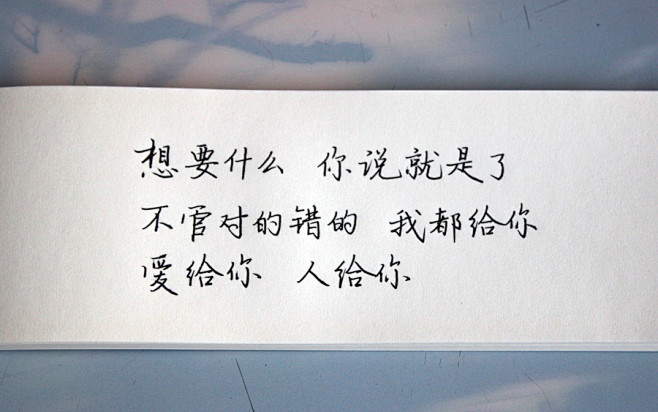 想要什么 你说就是了
不管对的错的 我都给你
爱给你 人给你